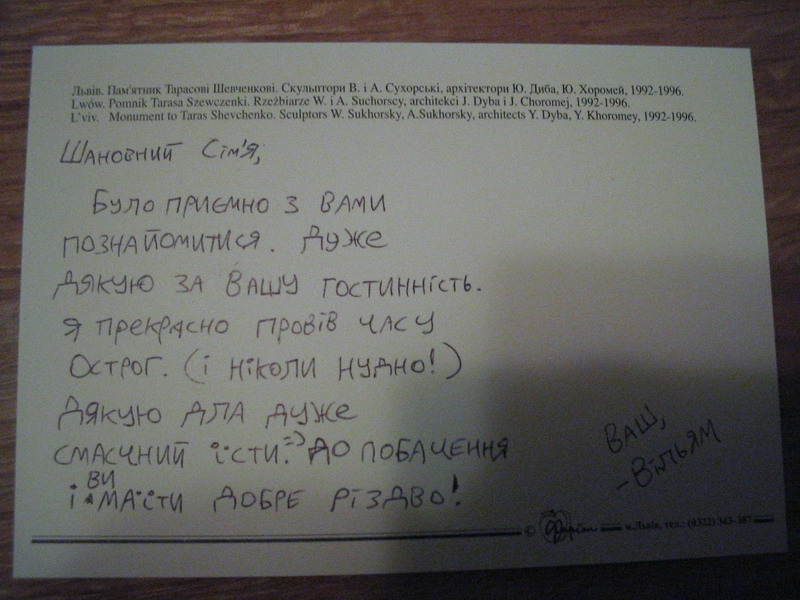 Львів. Пам'ятник Тарасові Шевченкові. Скульптори В. і А. Сухорські, архітектори Ю. Диба, Ю. Хоромей, 1992-1996.
Lwów. Pomnik Tarasa Szewczenki. Rzeźbiarze W. i A. Suchorscy, architekci J. Dyba i J. Choromej, 1992-1996.
L'viv. Monument to Taras Shevchenko. Sculptors W. Sukhorsky, A.Sukhorsky, architects Y. Dyba, Y. Khoromey, 1992-1996.
Шановний Сім'я,
Було приємно з вами
познайомитися. Дуже
дякую за вашу гостинність.
Я прекрасно провів часу
Острог. (і ніколи нудно!)
Дякую дла дуже
смасчний їсти. =) До побачення
і ви маїсти добре Різдво!
Ваш,
-Вільям
© м.Львів, тел.: (0322)